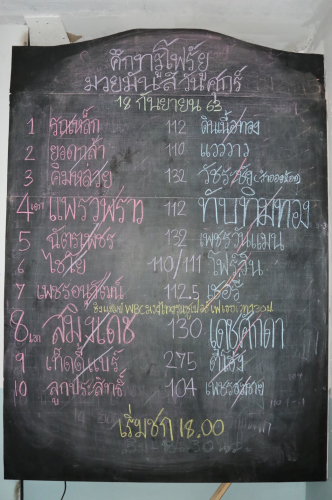 ศึกทรูโฟร์ยู
มวยมันส์วันศุกร์
18 กันยายน 63
1 รถเหล็ก 112 ดินเนื้อทอง
2 ยอดาล่า 110 แวววาว
3 คิมหลวย 132
4 เอก แพรวพราว 112 ทับทิมทอง
5 ฉัตรเพชร 132 เพชรวันแมน
6 ไชโย 110/111 โฟร์วิน
7 เพชรอนุวัฒน์ 112.5 เชอรี่
ชิงแชมป์ WBC มวยไทย
8 เอก สมิงเดช 130 เดชศักดา
9 เค็ดดี้แบร์ 275
10 ลูกประสิทธิ์ 104
เริ่มชก 18.00